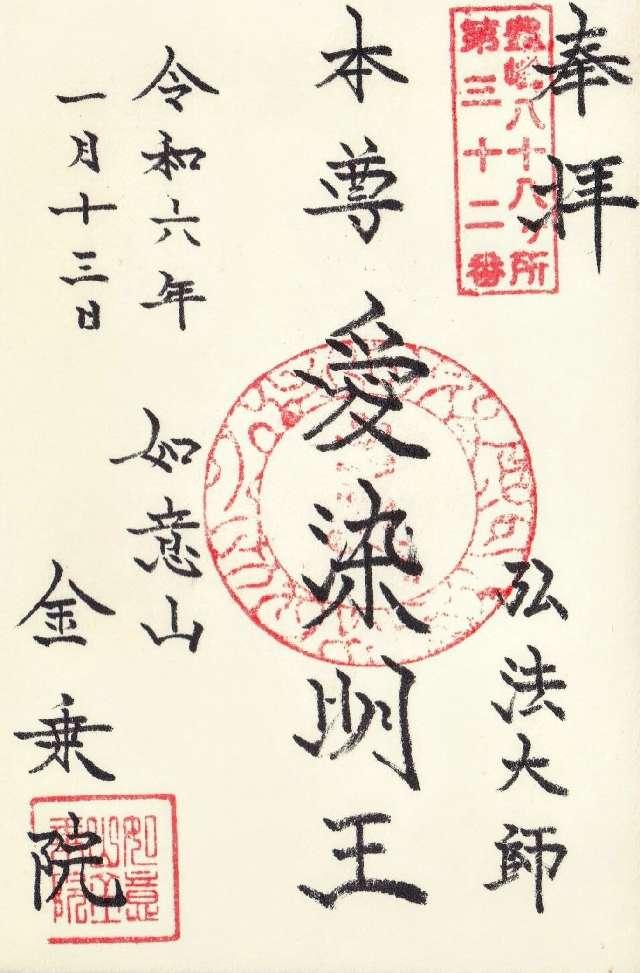 奉拝
豊嶋八十八ヶ所
第三十二番
弘法大師
本尊 愛染明王
令和六年
一月十三日
如意山
金乗院